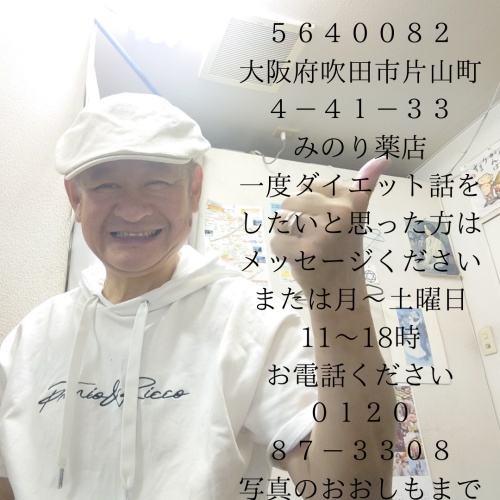 ５６４００８２
大阪府吹田市片山町
４－４１－３３
みのり薬店
一度ダイエット話を
したいと思った方は
メッセージください
または月〜土曜日
11〜18時
お電話ください
０１２０
８７－３３０８
写真のおおしもまで